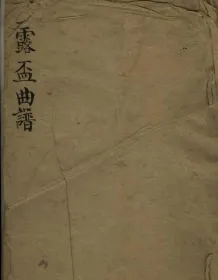 露盃曲譜